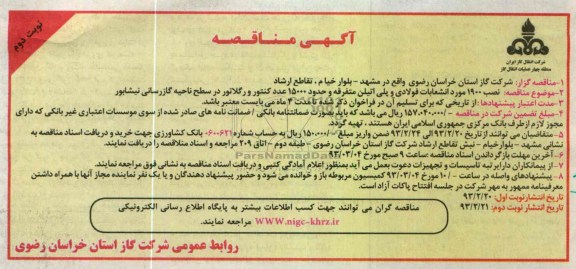 آگهـی منـاقـصـه
نوبت دوم
شرکت انتقال گاز ایران
منطقه چهار عملیات انتقال گاز
۱-مناقصه گزار: شرکت گاز استان خراسان رضوی واقع در مشهد - بلوار خیام ، تقاطع ارشاد
۲-موضوع مناقصه: نصب ۱۹۰۰ مورد انشعابات فولادی و پلی اتیلن متفرقه و حدود ۱۵۰۰۰ عدد کنتور و رگلاتور در سطح ناحیه گازرسانی نیشابور
۳-مدت اعتبار پیشنهادها :از تاریخی که برای تسلیم آن در فراخوان ذکر شده بمدت ۴ ماه می بایست معتبر باشد.
۴-مبلغ تضمین شرکت در مناقصه - ۱۵۷،۰۴۰،۰۰۰/ ریال می باشد که باید بصورت ضمانتنامه بانکی / ضمانت نامه های صادر شده از سوی موسسات اعتباری غیر بانکی که دارای
مجوز لازم از طرف بانک مرکزی جمهوری اسلامی ایران هستند ، تهیه گردد.
۵-متقاضیان می توانند از تاریخ ۹۳/۲/۲۰ الی ۹۳/۲/۲۴ ضمن واریز مبلغ -/۱۵۰،۰۰۰ ریال به حساب شماره ۰۶۰۰۶۲۱ بانک کشاورزی جهت خرید و دریافت اسناد مناقصه به
نشانی مشهد - بلوارخیام - نبش تقاطع ارشاد شرکت گاز استان خراسان رضوی - طبقه دوم - اتاق ۲۰۹ مراجعه و اسناد مناقصه را دریافت نمایند.
۶-آخرین مهلت بازگرداندن اسناد مناقصه ساعت ۹ صبح مورخ ۹۳/۰۳/۰۴
۷-از پیمانکاران دارای رتبه تاسیسات و تجهیزات دعوت بعمل می آید بمنظور اعلام آمادگی کتبی و دریافت اسناد مناقصه به نشانی فوق مراجعه نمایند.
۸-پیشنهادهای واصله در ساعت -/ ۱۰ مورخ ۹۳/۰۳/۰۴ کمیسیون مربوطه باز و خوانده می شود و حضور پیشنهاد دهندگان و یا یک نفر نماینده مجاز آنها با همراه داشتن
معرفینامه ممهور به مهر شرکت در جلسه افتتاح پاکات آزاد است.
تاریخ انتشارنوبت اول: ۹۳/۲/۲۰
تاریخ انتشارنوبت دوم: ۹۳/۲/۲۱
مناقصه گران می توانند جهت کسب اطلاعات بیشتر به پایگاه اطلاع رسانی الکترونیکی
WWW.nigc-khrz.ir مراجعه نمایند.
روابط عمومی شرکت گاز استان خراسان رضوی